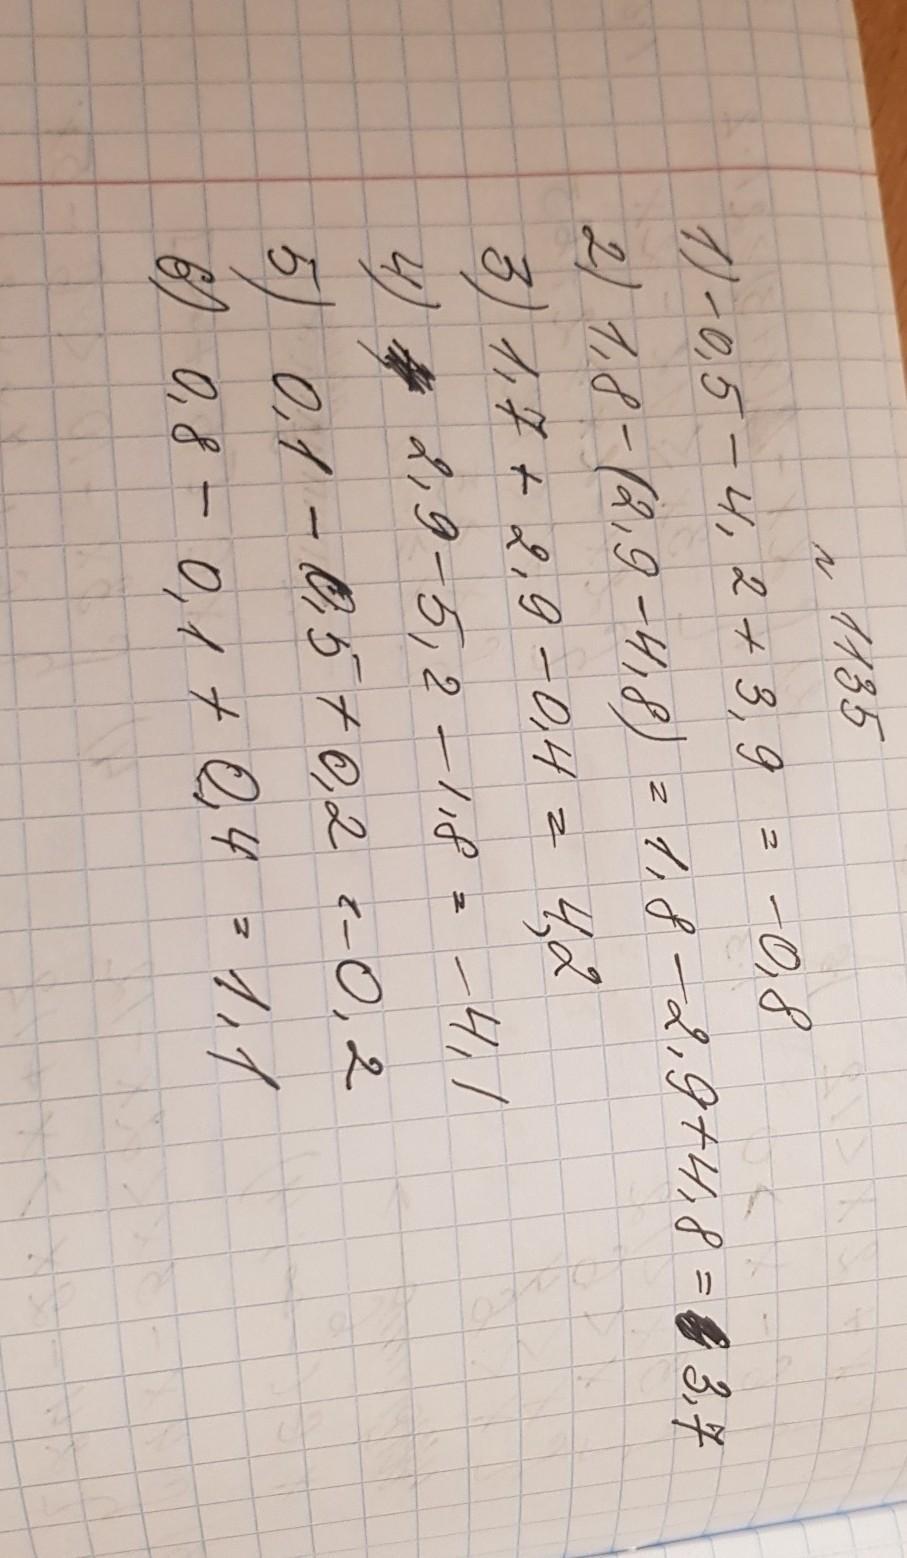 n 1135
1) -0,5 - 4,2 + 3,9 = -0,8
2) 1,8 - (2,9 - 4,8) = 1,8 - 2,9 + 4,8 = 3,7
3) 1,7 + 2,9 - 0,4 = 4,2
4) 2,9 - 5,2 - 1,8 = -4,1
5) 0,1 - 0,5 + 0,2 = -0,2
6) 0,8 - 0,1 + 0,4 = 1,1